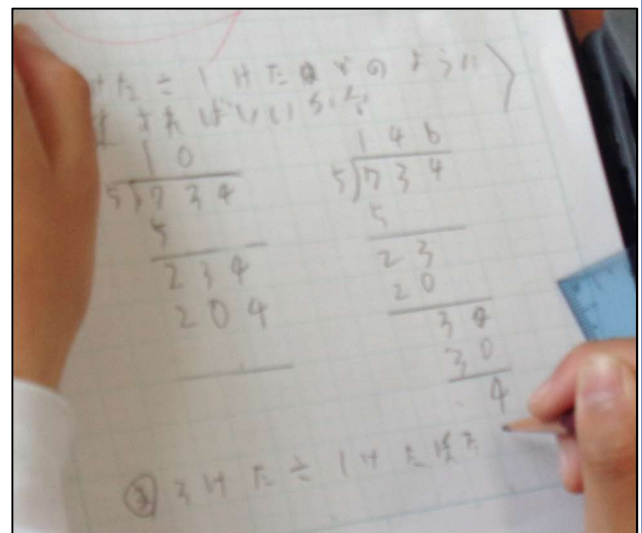 けた÷1けたはどのように
すればいいらいか
1 0
5)734
5
234
204
1 4 6
5)734
5
23
20
34
30
4
3けた÷1けたは